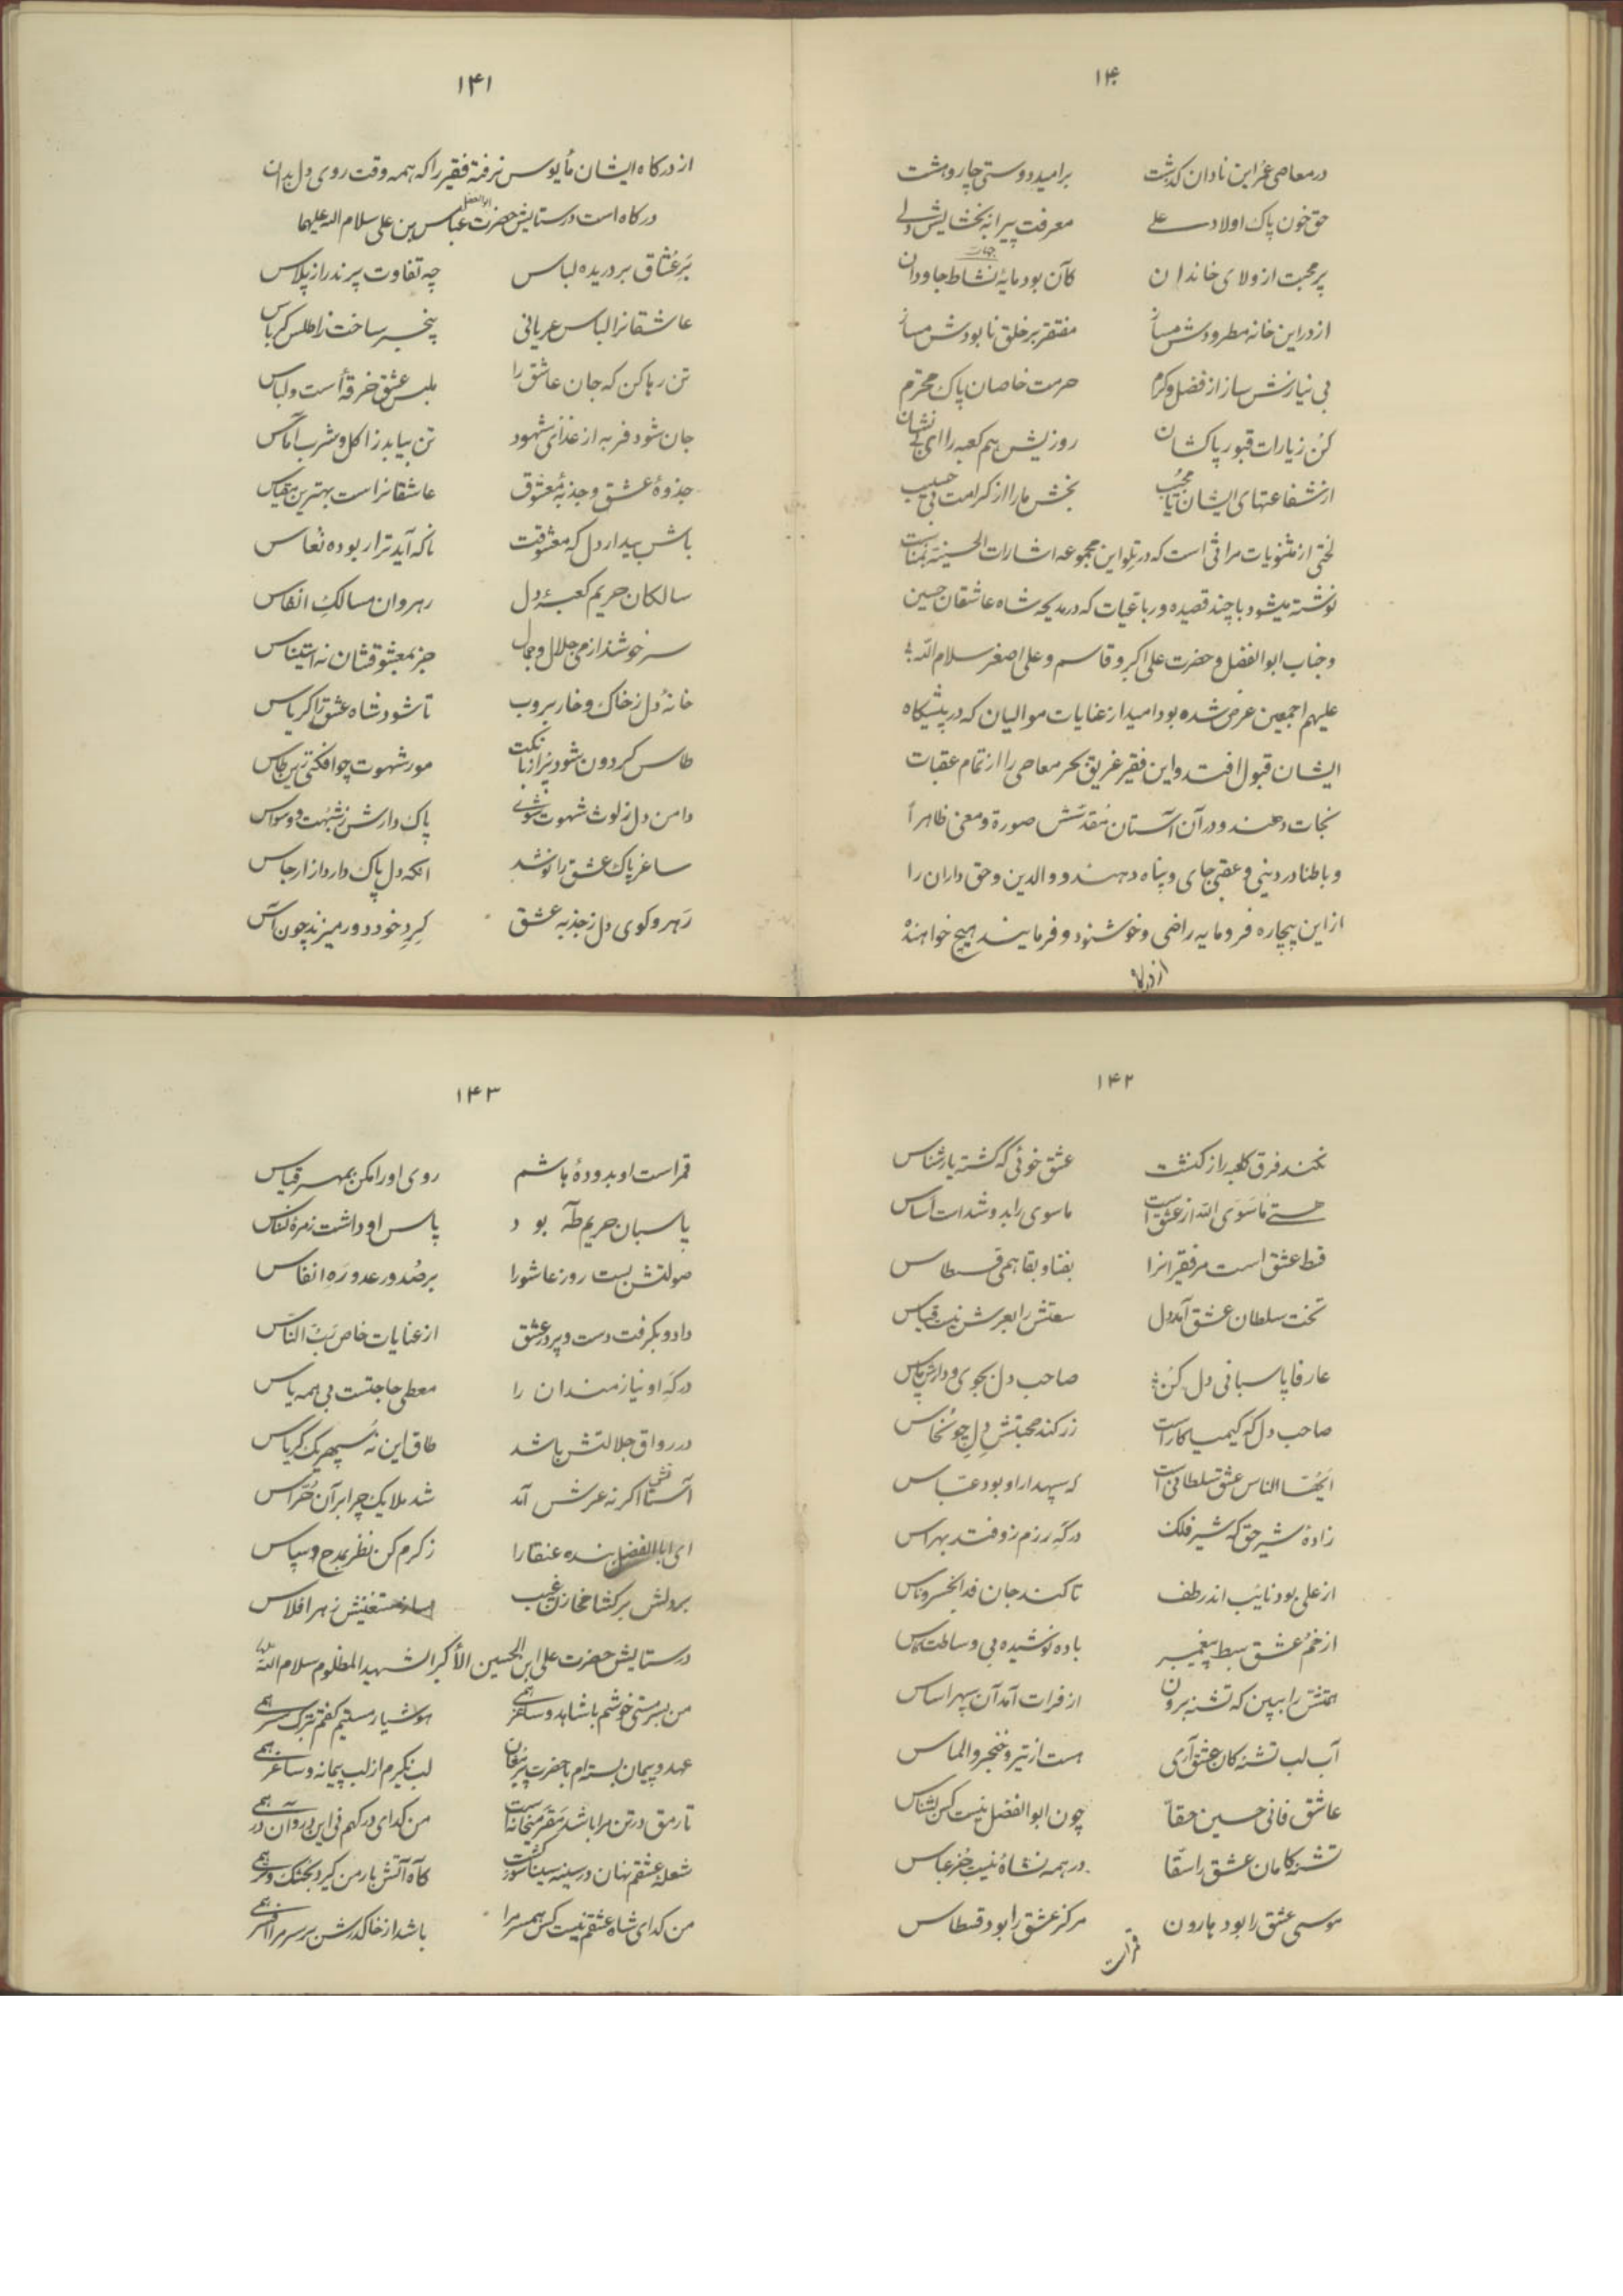 ۱۴۰
در معاصی عمر این نادان گذشت براميد دوستی چار و هشت
حق خون پاک اولاد علی معرفت پیرا به بخشایش دلی
پر محبت از ولای خاندان کآن بود مایهٔ نشاط جاودان
از در این خانه مطرودش مساز مفتقر بر خلق نابودش مساز
بی نیازش ساز از فضل و کرم حرمت خاصان پاک محترم
کن زیارات قبور پاکشان روزیش هم کعبه را ای بی نشان
از شفاعتهای ایشان یا مجیب بخش ما را از کرامت بی حسیب
لختی از مثنویات مراثی است که در تلو این مجموعه اشارات الحسینیه بمناسبت
نوشته میشود با چند قصیده و رباعیات که در مدیحه شاه عاشقان حسین
و جناب ابوالفضل و حضرت علی اکبر و قاسم و علی اصغر سلام الله
علیهم اجمعین عرض شده بود امید از عنایات موالیان که در پیشگاه
ایشان قبول افتد و این فقیر غریق بحر معاصی را از تمام عقبات
نجات دهند و در آن آستان مقدسش صورة و معنی ظاهراً
و باطنا در دینی و عقبی جای و پناه دهند و والدین و حق داران را
از این بیچاره فرومایه راضی و خوشنود و فرمایند هیچ خواهنده
از درگاه
۱۴۱
از درگاه ایشان مأیوس نرفته فقیر را که همه وقت روی دل بدان
درگاه است در ستایش حضرت ابوالفضل عباس بن علی سلام الله علیهما
بر عشاق بر دریده لباس چه تفاوت پرند را ز پلاس
عاشقانرا لباس عریانی بیخبر ساخت ز اطلس کرباس
تن رها کن که جان عاشق را ملبس عشق خرقه است و لباس
جان شود فربه از غذای شهود تن بیابد ز اکل و شرب آماس
جذوهٔ عشق و جذبهٔ معشوق عاشقانراست بهترین مقیاس
باش بیدار دل که معشوقت ناگه آید ترا ربوده نعاس
سالکان حریم کعبهٔ دل رهروان مسالک انفاس
سرخوشند از می جلال و جمال جز بمعشوقشان نه استیناس
خانهٔ دل ز خاک و خار بروب تا شود شاه عشق را کریاس
طاس گردون شود پر از بانگت مور شهوت چو افکنی زین طاس
دامن دل ز لوث شهوت شوی پاک دارش ز شبهت و وسواس
ساغر پاک عشق را نوشد آنکه دل پاک دارد از ارجاس
رهرو کوی دل ز جذبه عشق گرد خود دور میزند چون آس
۱۴۲
نکند فرق کعبه را ز کنشت عشق خوئی که گشته یار شناس
هستی ماسوی الله از عشق است ماسوی را بدو شد است اساس
قط عشق است مر فقیرانرا بفنا و بقا همی قسطاس
تخت سلطان عشق آمد دل سعتش را بعرش نیست قیاس
عارفا پاسبانی دل کن صاحب دل بجوی و دارش پاس
صاحب دل که کیمیا کار است زر کند محبتش دل چو نحاس
ایها الناس عشق سلطانی است که سپهدار او بود عباس
زادهٔ شیر حق که شیر فلک در گه رزم زو فتد بهراس
از علی بود نایب اندر طف تا کند جان فدا بخسرو ناس
از خم عشق سبط پیغمبر باده نوشیده بی وساطت کاس
همتش را ببین که تشنه برون از فرات آمد آن سپهر اساس
آب لب تشنه کان عشق آری هست از تیر و خنجر و الماس
عاشق فانی حسین حقا چون ابوالفضل نیست کس بشناس
تشنه کامان عشق را سقا در همه نشاه نیست جز عباس
موسی عشق را بود هارون مرکز عشق را بود قسطاس
قمر است
۱۴۳
قمر است او بدودهٔ هاشم روی او را مکن بمهر قیاس
پاسبان حریم طه بود پاس او داشت زمرهٔ نسناس
صولتش بست روز عاشورا بر صدور عدو ره انفاس
داد و بگرفت دست و پر در عشق از عنایات خاص رب الناس
درگه او نیازمندان را معطی حاجتست بی همه یاس
در رواق جلالتش باشد طاق این نه سپهر یک کریاس
آستانش اگر نه عرش آمد شد ملایک چرا بر آن حراس
ای ابا الفضل بنده عنقا را ز کرم کن نظر بمدح و سپاس
بر دلش برگشا مخازن غیب ساز مستغنیش ز هر افلاس
در ستایش حضرت علی ابن الحسین الأکبر الشهید المظلوم سلام الله علیه
من بسرمستی خوشم با شاهد و ساغر همی هوشیار مستیم گفتم بترک سر همی
عهد و پیمان بسته‌ام با حضرت پیر مغان لب نگیرم از لب پیمانه و ساغر همی
تا رمق در تن مرا باشد مقر میخانه است من گدای درگهم نی این در و آن در همی
شعلهٔ عشقم نهان در سینه سینا سوز گشت کآه آتش بار من گیرد بخشک و تر همی
من گدای شاه عشقم نیست کس همسر مرا باشد از خاک درش بر سر مرا افسر همی